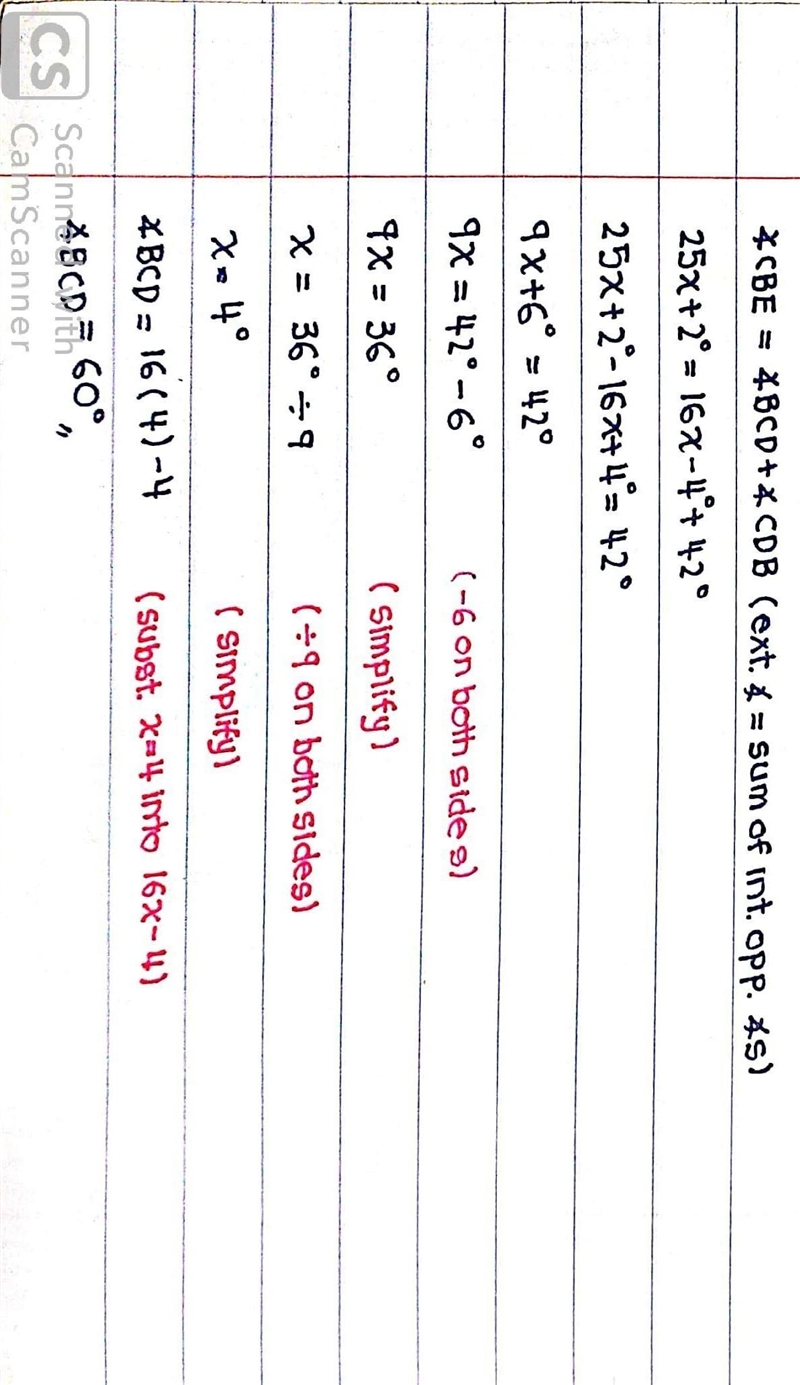 ∡CBE = ∡BCD + ∡CDB (ext. ∡ = sum of int. opp. ∡s)
25x + 2° = 16x - 4° + 42°
25x + 2° - 16x + 4° = 42°
9x + 6° = 42°
9x = 42° - 6° (-6 on both sides)
9x = 36° (simplify)
x = 36° ÷ 9 (÷9 on both sides)
x = 4° (simplify)
∡BCD = 16(4) - 4 (subst. x=4 into 16x-4)
∡BCD = 60°,,
CS Scanned with
CamScanner